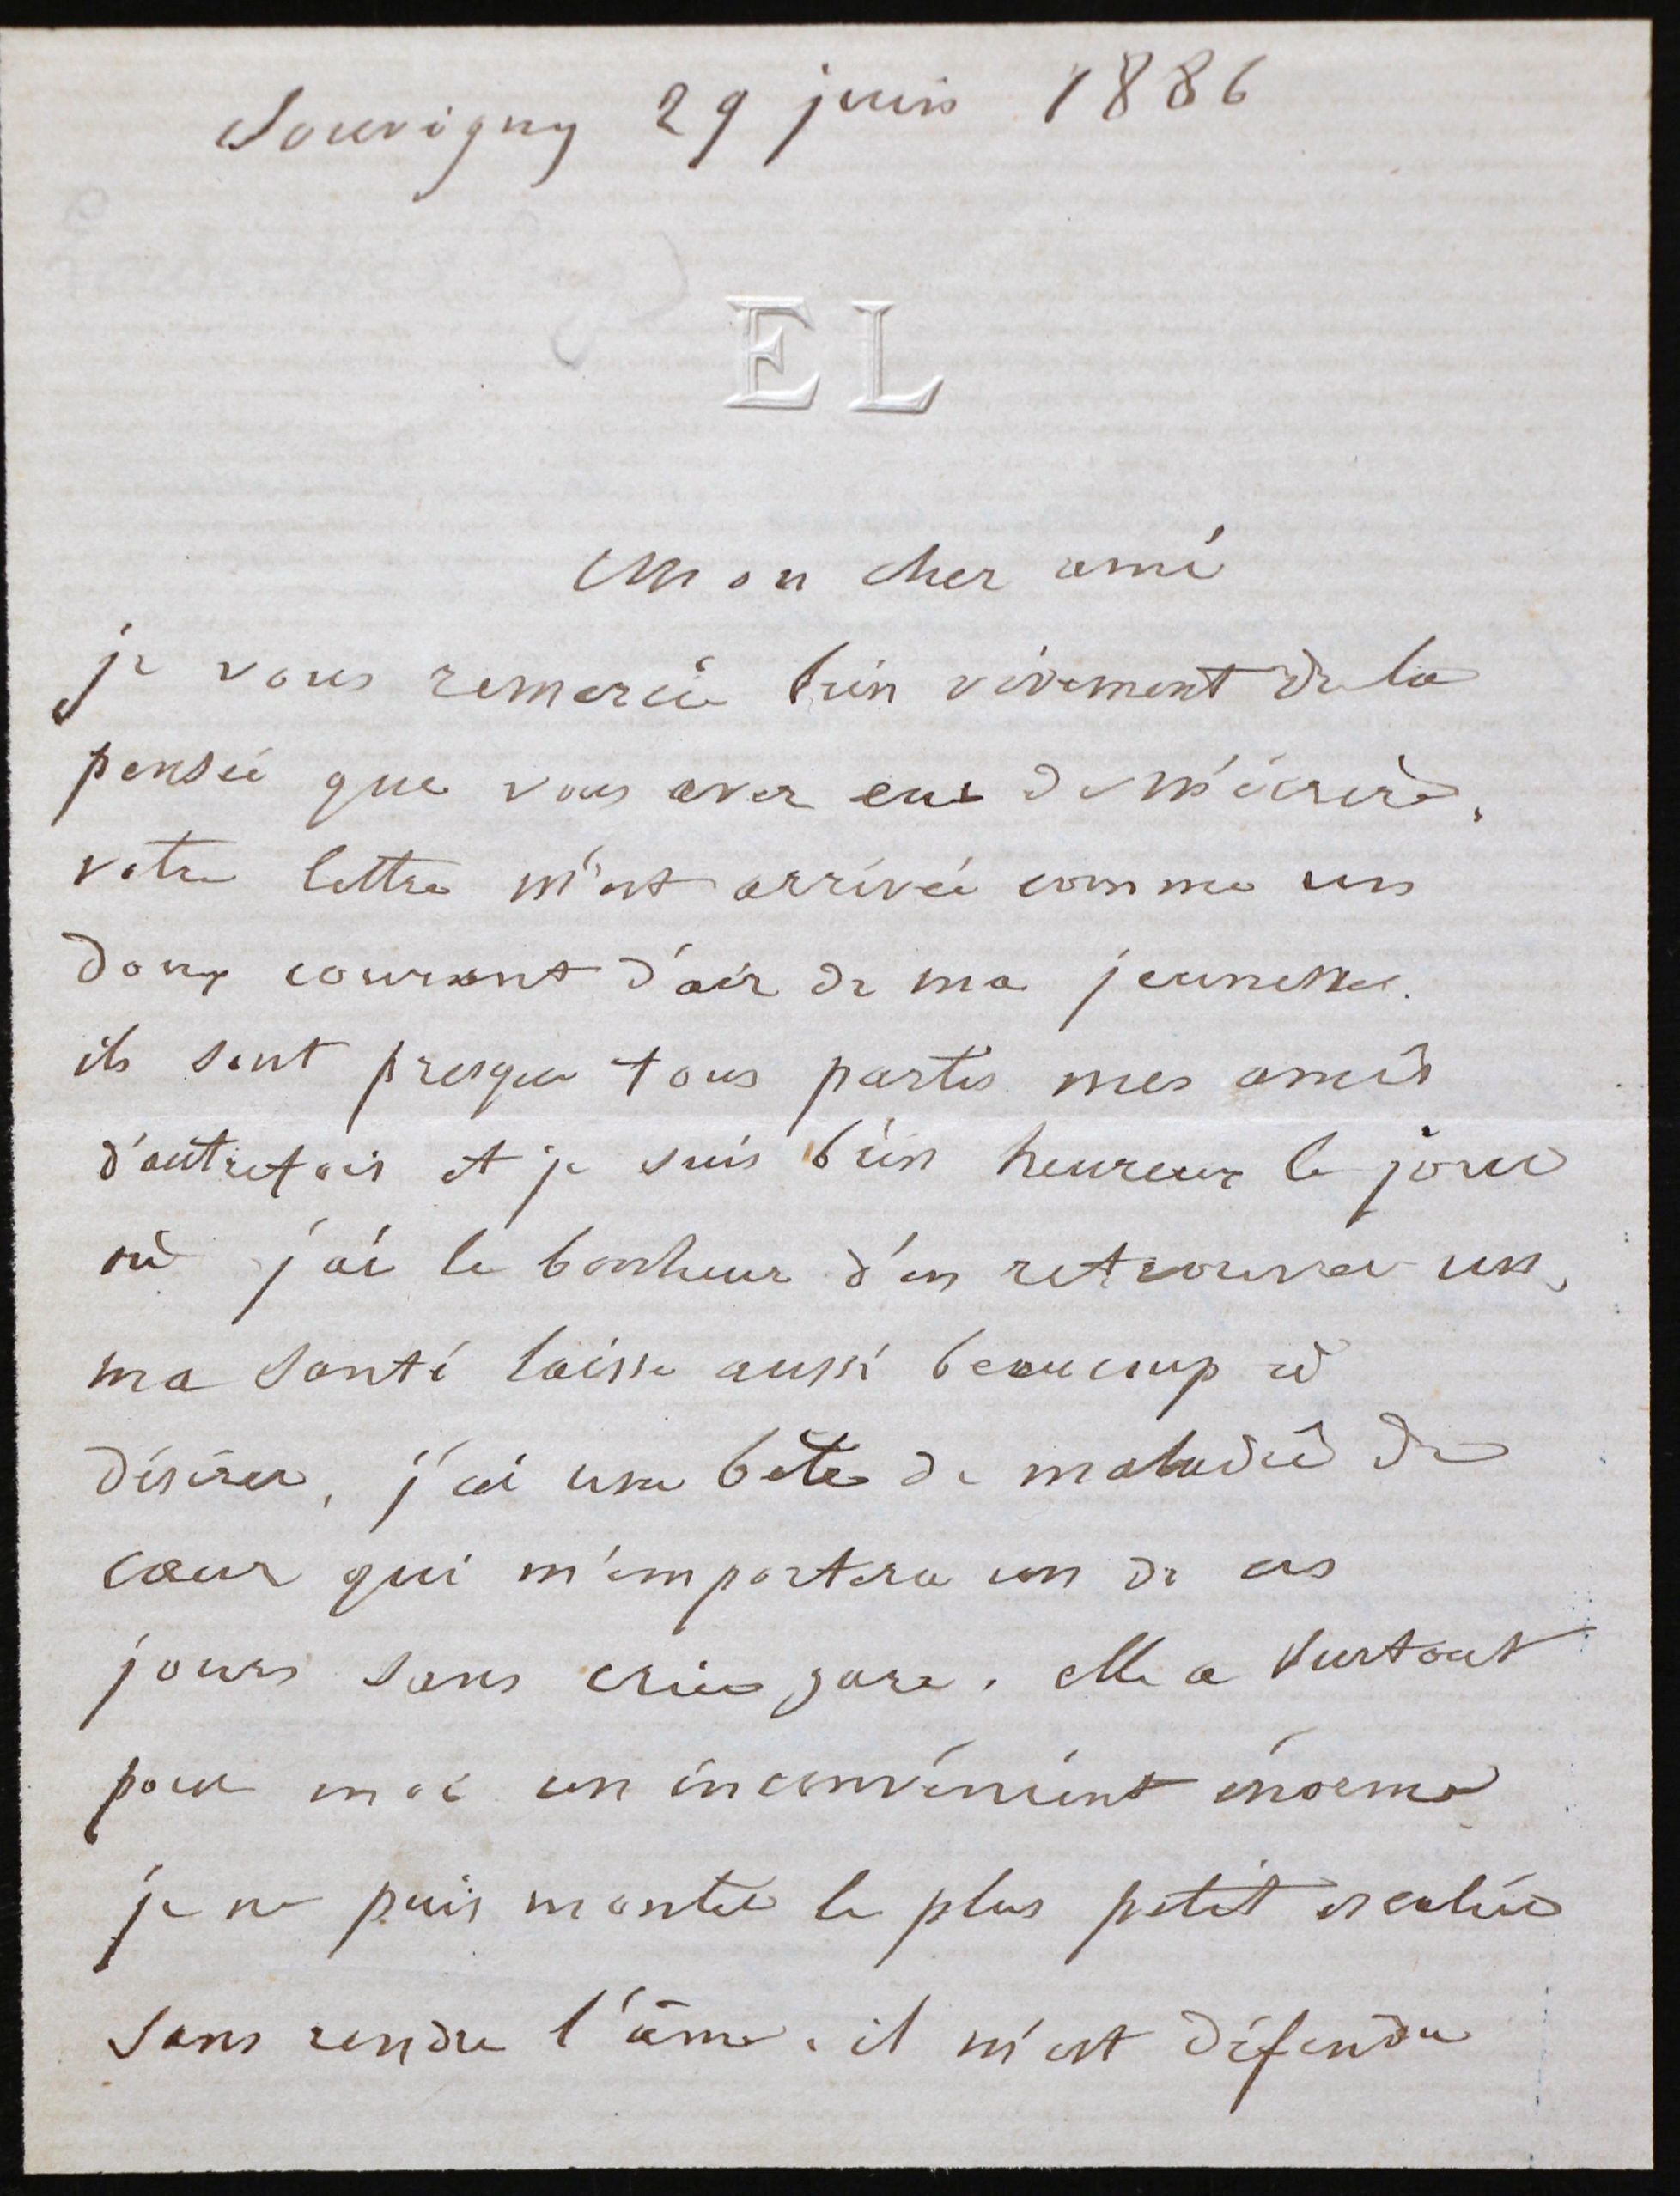 Souvigny 29 juin 1886
EL
Mon cher ami
je vous remercie bien vivement de la
pensée que vous avez eue de m'écrire,
votre lettre m'est arrivée comme un
doux courant d'air de ma jeunesse.
ils sont presque tous partis mes amis
d'autrefois et je suis bien heureux le jour
où j'ai le bonheur d'en retrouver un,
ma santé laisse aussi beaucoup à
désirer, j'ai une bête de maladie de
cœur qui m'emportera un de ces
jours sans crier gare. elle a surtout
pour moi un inconvénient énorme
je ne puis monter le plus petit escalier
sans rendre l'âme. il m'est défendu